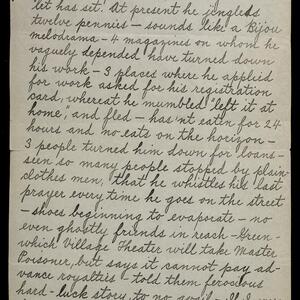 let has set. At present he jingles
twelve pennies – sounds like a Bijou
melodrama – 4 magazines on whom he
vaguely depended have turned down
his work – 3 places where he applied
for work asked for his registration
card, whereat he mumbled "left it at
home", and fled – hasn't eaten for 24
hours and no eats on the horizon –
3 people turned him down for loans –
seen so many people stopped by plain-
clothes men, that he whistles his last
prayer every time he goes on the street
– shoes beginning to evaporate – no
even ghostly friends in reach – Green-
wich Village Theater will take Master
Poisoner, but says it cannot pay ad-
vance royalties – told them ferocious
hard-luck story, to no avail